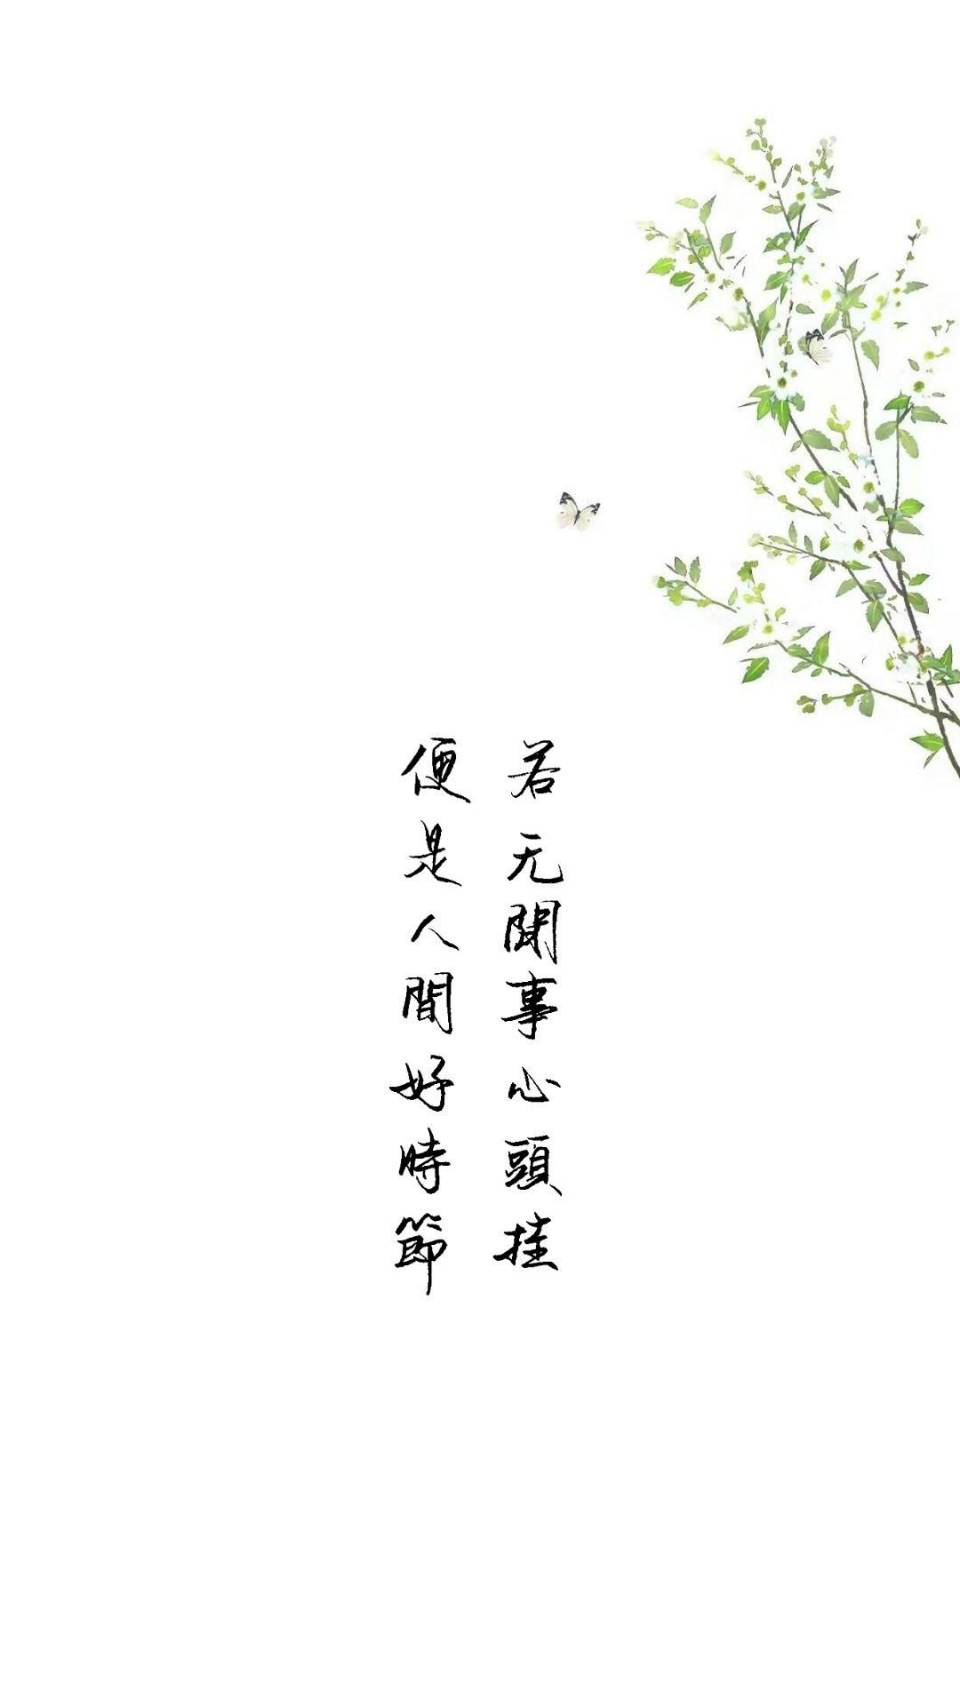 若无閒事心頭挂
便是人間好時節